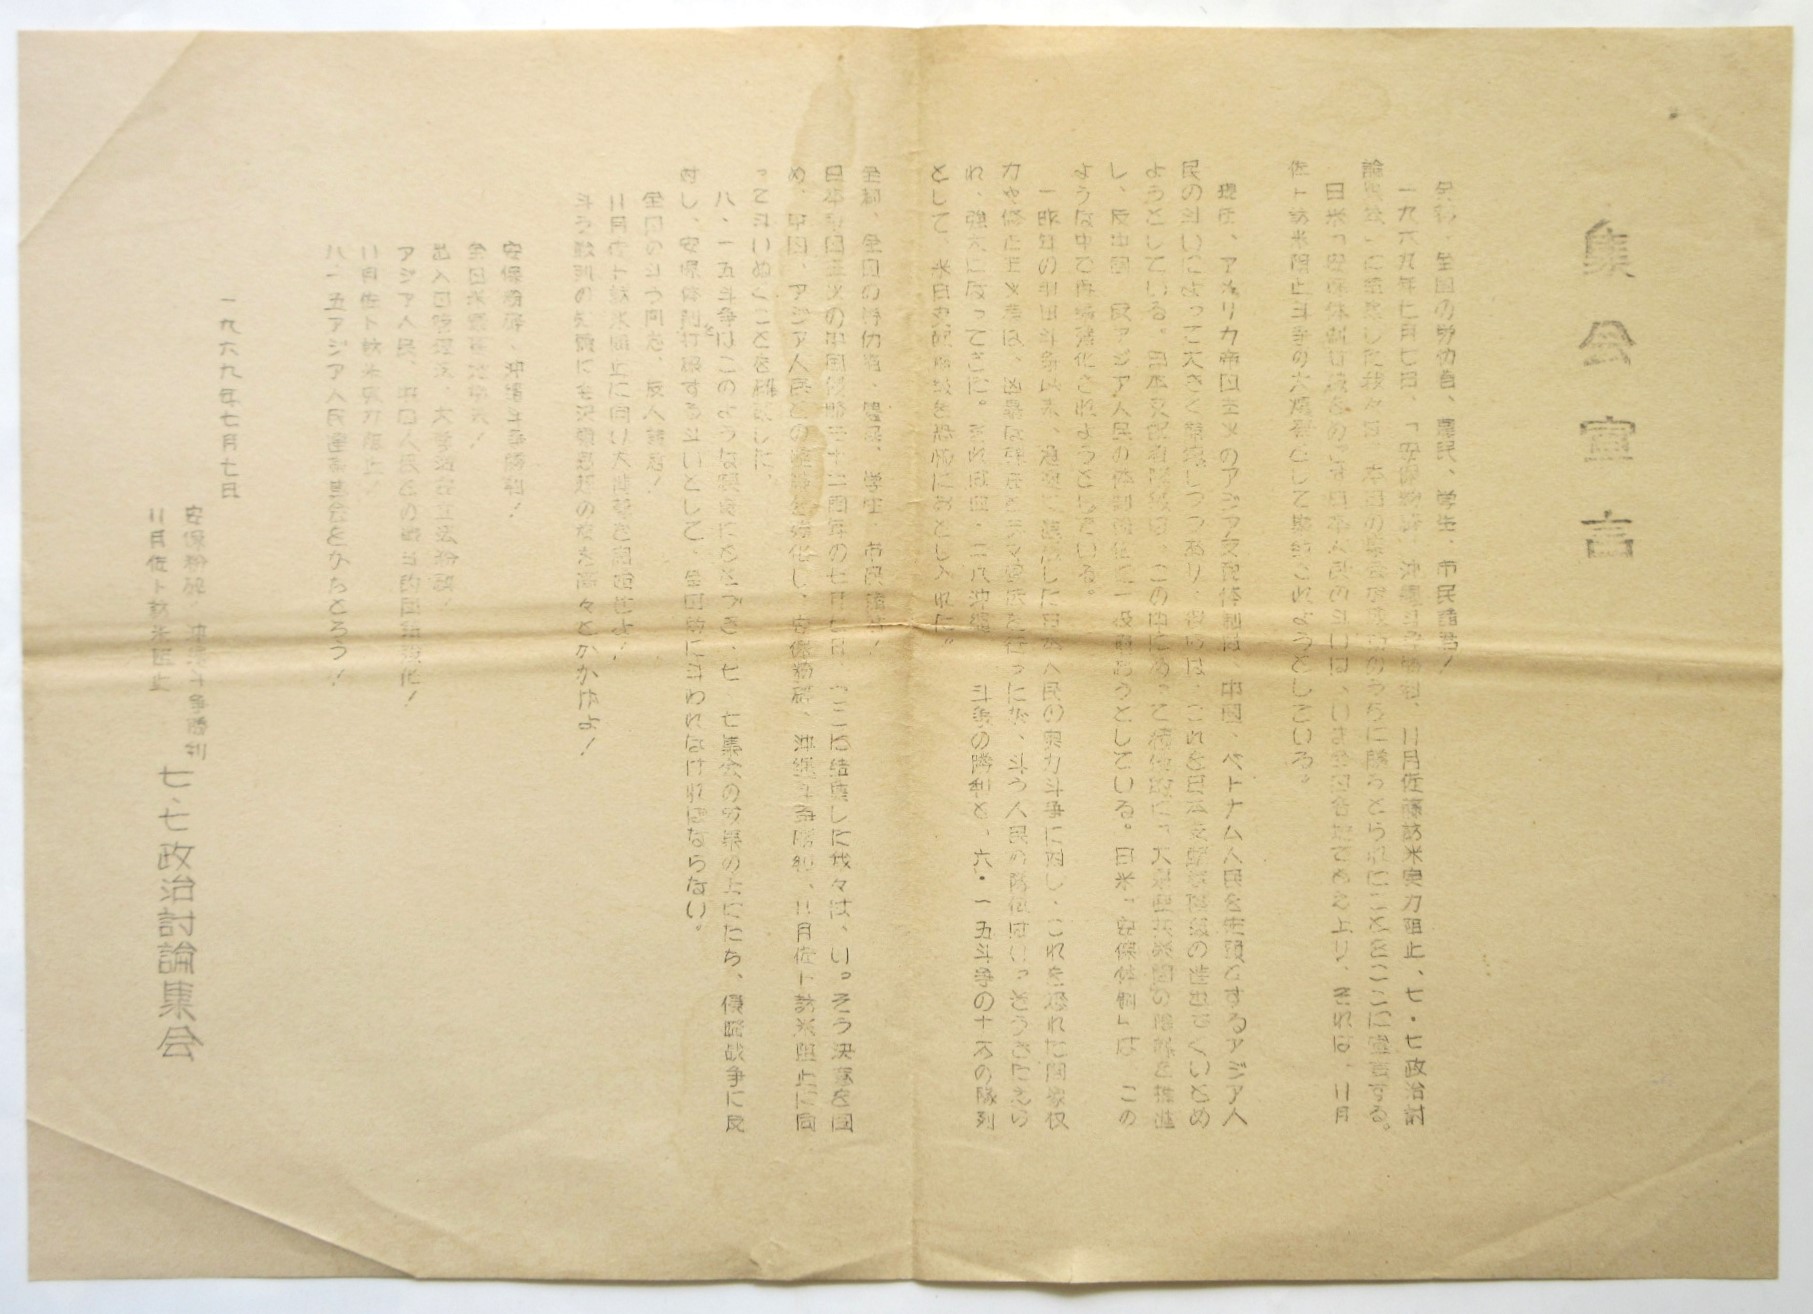 集会宣言
全都、全国の労仂者、農民、学生、市民諸君！
一九六九年七月七日、「安保粉砕、沖縄斗争勝利、11月佐藤訪米実力阻止、七・七政治討
論集会」に結集した我々は、本日の集会が成功のうちに勝ちとられたことをここに宣言する。
日米「安保体制」をめぐる日本人民の斗いは、いま全国各地でもえ上り、それは、11月
佐ト訪米阻止斗争の大爆発として準備されようとしている。
現在、アメリカ帝国主义のアジア支配体制は、中国、ベトナム人民を先頭とするアジア人
民の斗いによって大きく崩壊しつつあり、彼らは、これを日本支配者階級の進出でくいとめ
ようとしている。日本支配者階級は、この中にあって積極的に
し、反中国、反アジア人民の体制強化に一役買おうとしている。日米「安保体制」は、この
ような中で再編強化されようとしている。
一昨年の羽田斗争以来、急速に高揚した日本人民の実力斗争に対し、これを恐れた国家权
力や修正主义者は、凶暴な弾圧とデマ宣伝を行ったが、斗う人民の隊伍はい。そうきたえら
れ、強大になってきた。それは四・二八沖縄斗争の勝利と、六・一五斗争の十万の隊列
として、米日支配階級を恐怖におとし入れた。
全都、全国の労仂者、農民、学生、市民諸君！
日本帝国主义の中国侵略三十二周年の七月七日、ここに結集した我々は、い。そう決意を固
め、中国、アジア人民との連帯を強化し、安保粉砕、沖縄斗争勝利、11月佐ト訪米阻止に向
って斗いぬくことを確認した。
八、一五斗争はこのような現実にもとづき、七、七集会の成果の上にたち、侵略战争に反
対し、安保体制を打破する斗いとして、全国的に斗われなければならない。
全国の斗う同志、友人諸君！
11月佐ト訪米阻止に向け大衆を
斗う隊列の先頭に毛沢東思想のはたを高々とかかげよ！
安保粉砕、沖縄斗争勝利！
全国米軍基地撤去！
出入国管理法、大学治安立法粉砕！
アジア人民、中国人民との戦斗的団結強化！
11月佐ト訪米実力阻止！
八・一五アジア人民連帯集会をかちとろう！
一九六九年七月七日
安保粉砕、沖縄斗争勝利
11月佐ト訪米阻止
七、七政治討論集会